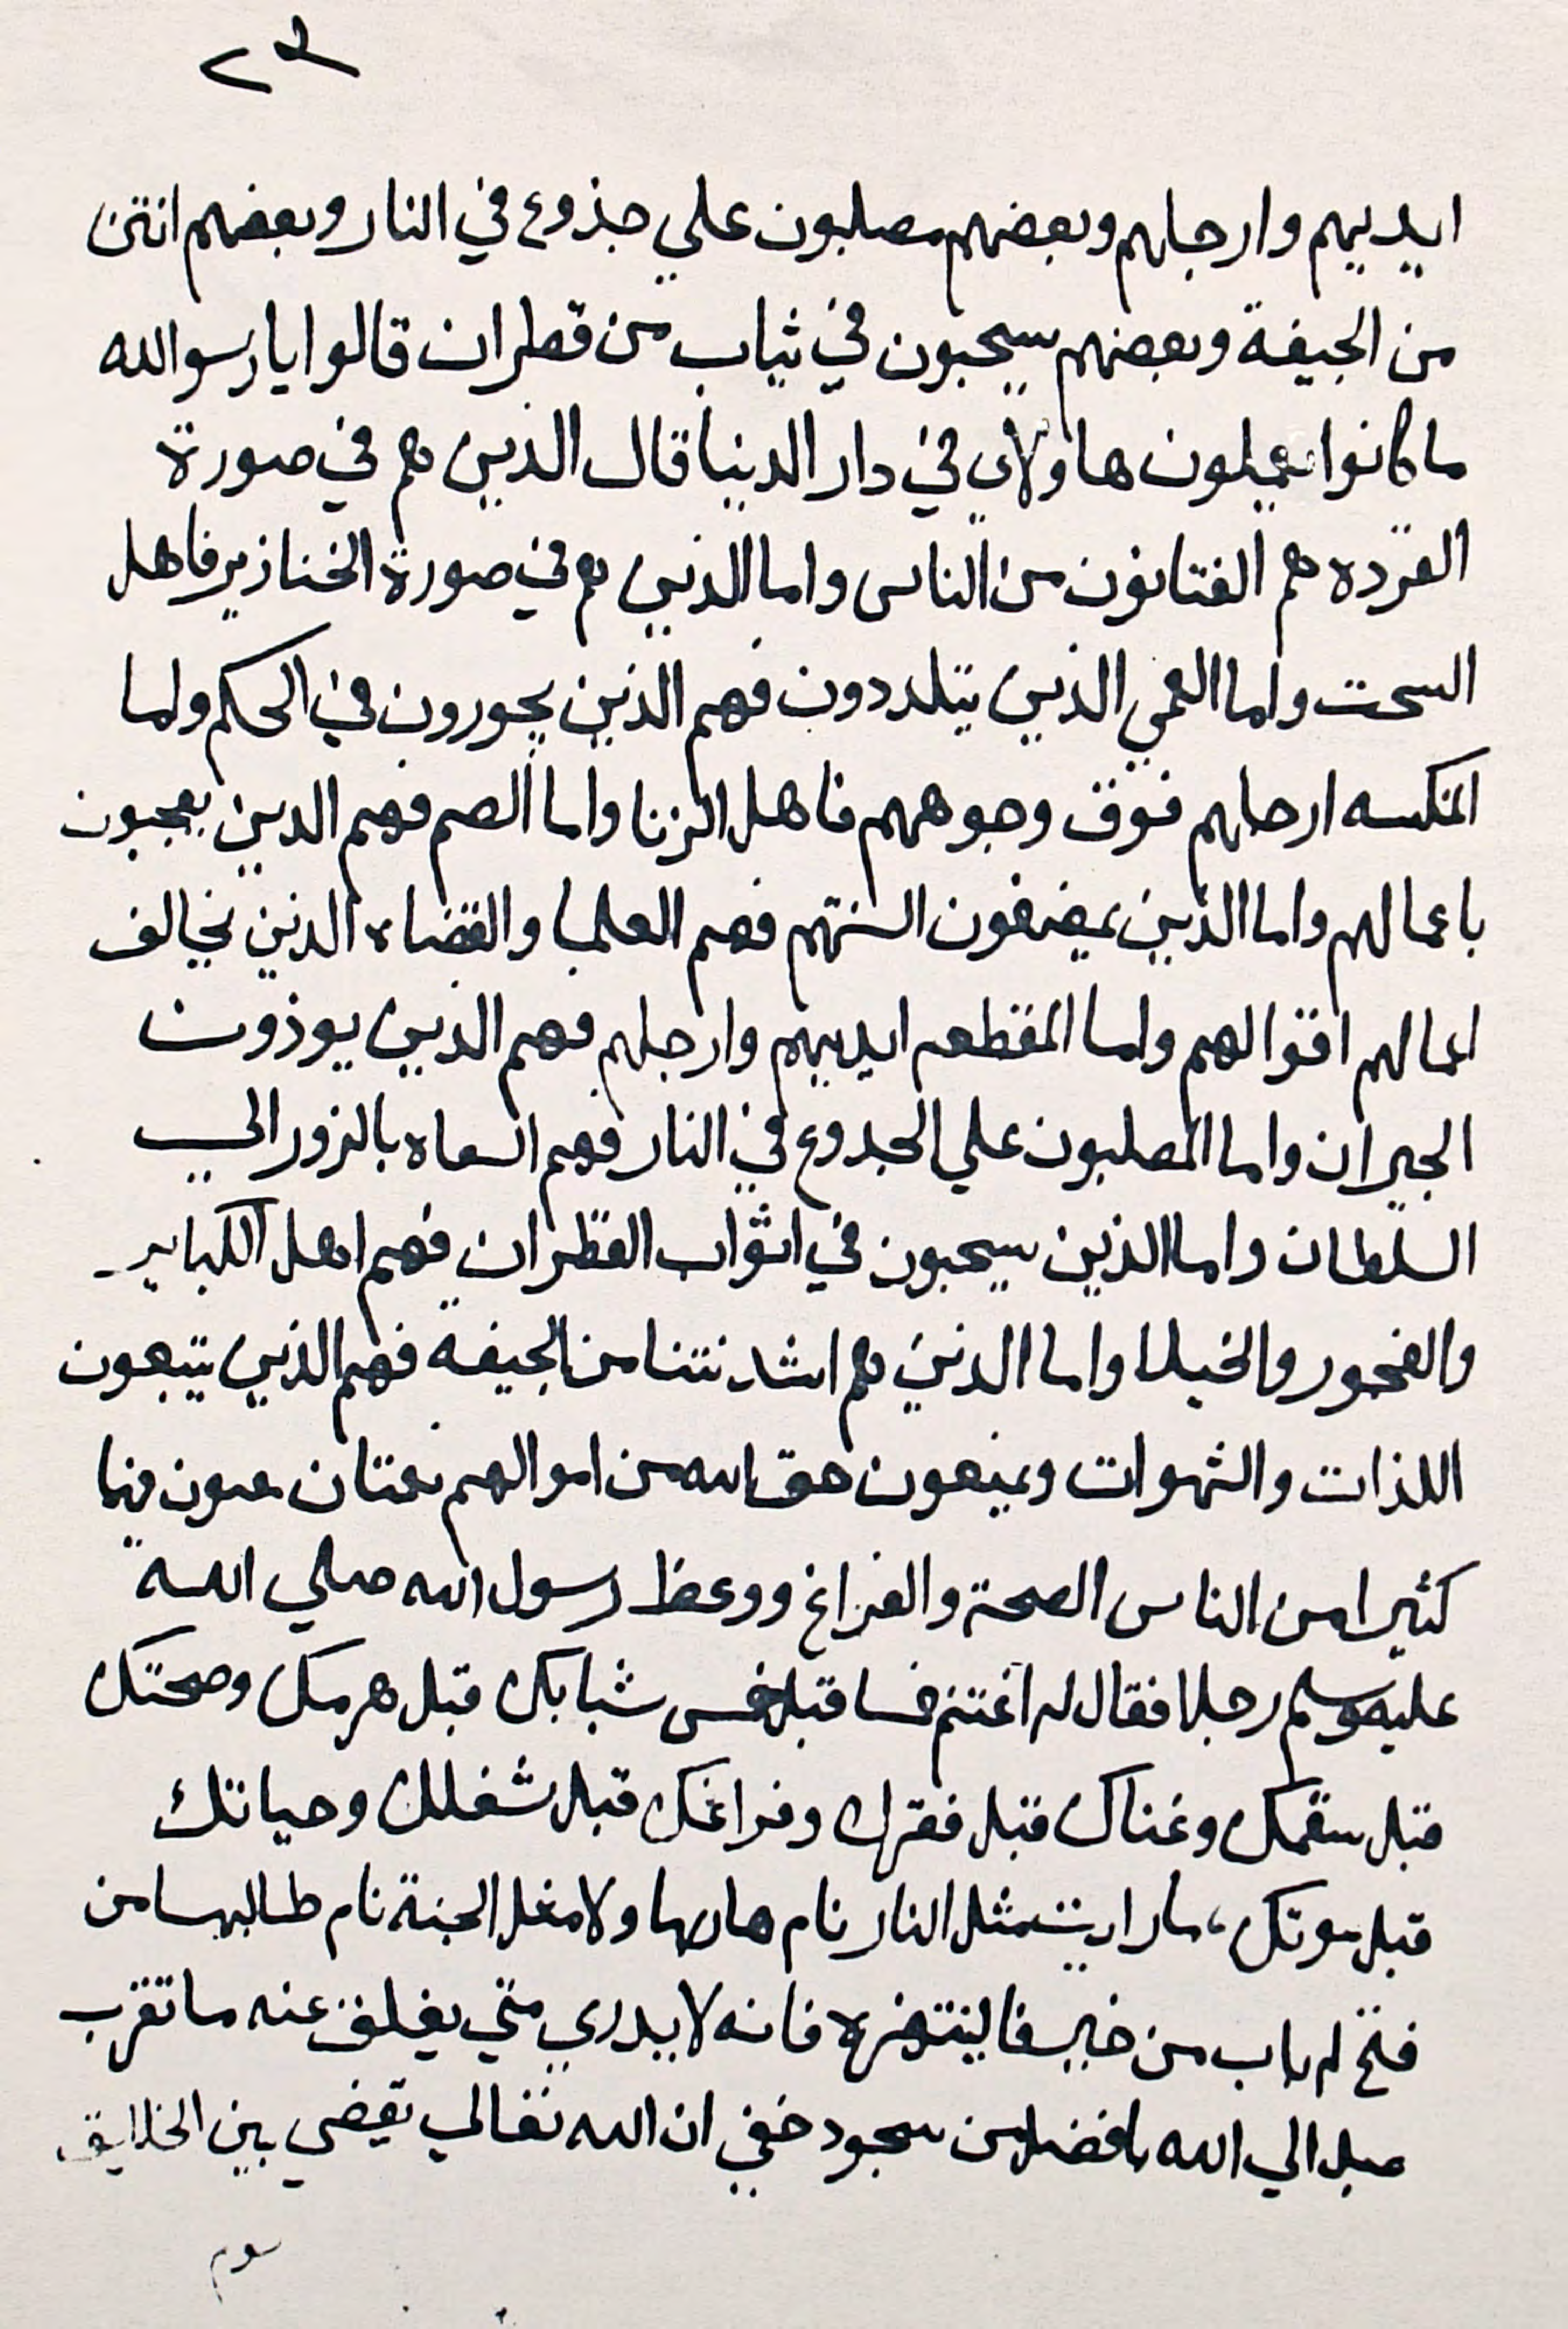 ايديهم وارجلهم وبعضهم مصلبون علي جذوع في النار وبعضهم انتن
من الجيفة وبعضهم يسحبون في ثياب من قطران قالوا يا رسوالله
ما كانوا يعملون هاولاي في دار الدنيا قال الذين هم في صورة
القرده هم الفتانون من الناس واما الذين هم في صورة الخنازير فاهل
السحت واما العمي الذين يتلددون فهم الذين يجورون في الحكم ولما
المنكسه ارجلهم فوق وجوههم فاهل الزنا واما الصم فهم الدين يعجبون
باعمالهم واما الذين يمضغون السنتهم فهم العلما والقضاه الذين يخالف
اعمالهم اقوالهم واما المقطعه ايديهم وارجلهم فهم الذين يوذون
الجيران واما المصلبون علي الجدوع في النار فهم السعاه بالزور الي
السلطان واما الذين يسحبون في اثواب القطران فهم اهل الكباير
والفجور والخيلا واما الذين هم اشد نتنا من الجيفه فهم الذين يتبعون
اللذات والشهوات ويمنعون حق الله من اموالهم نعمتان مغبون فيها
كثيرا من الناس الصحة والفراغ ووعظ رسول الله صلي الله
عليه وسلم رجلا فقال له اغتنم خمسا قبل خمس شبابك قبل هرمك وصحتك
قبل سقمك وغناك قبل فقرك وفراغك قبل شغلك وحياتك
قبل موتك، ما رايت مثل النار نام هاربها ولا مثل الجنة نام طالبها من
فتح له باب من خير فالينتهزه فانه لا يدري متي يغلق عنه ما تقرب
عبد الي الله بافضل من سجود خفي ان الله تعالي يقضي بين الخلايق